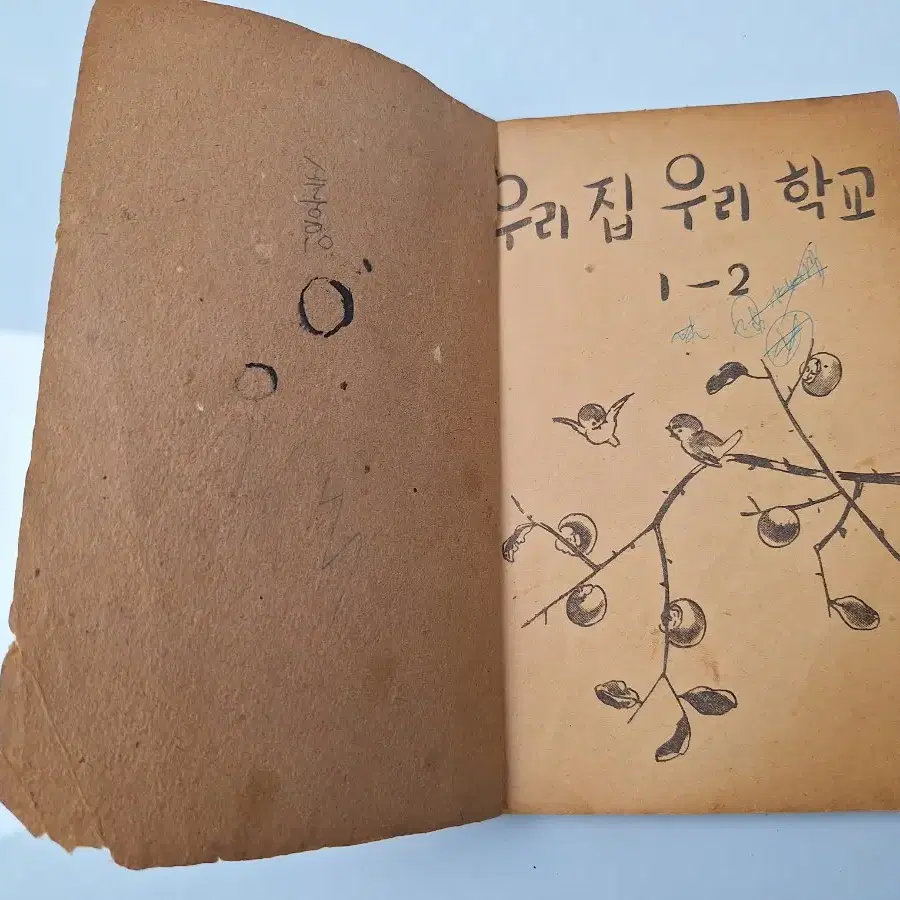 우리 집 우리 학교
1-2